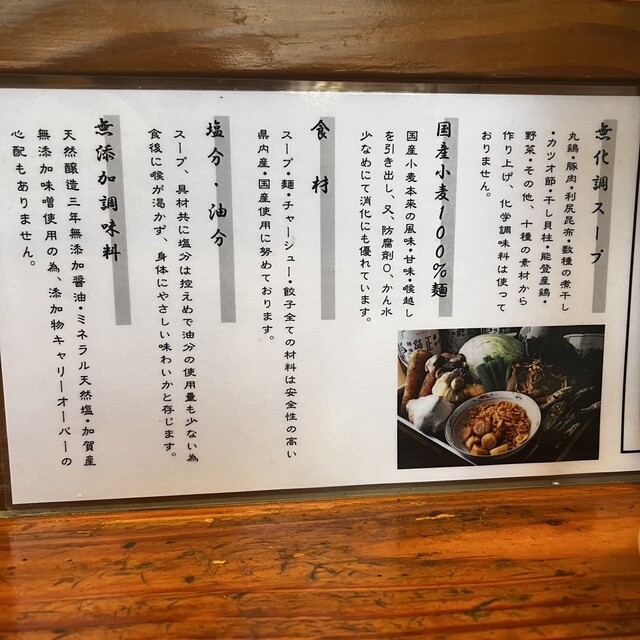 無化調スープ
丸鶏・豚肉・利尻昆布・数種の煮干し
・カツオ節・干し貝柱・能登産鶏・
野菜・その他、十種の素材から
作り上げ、化学調味料は使って
おりません。
国産小麦100%麺
国産小麦本来の風味・甘味・喉越し
を引き出し、又、防腐剤0、かん水
少なめにて消化にも優れています。
食材
スープ・麺・チャーシュー・餃子全ての材料は安全性の高い
県内産・国産使用に努めております。
塩分・油分
スープ、具材共に塩分は控えめで油分の使用量も少ない為
食後に喉が渇かず、身体にやさしい味わいかと存じます。
無添加調味料
天然醸造三年無添加醤油・ミネラル天然塩・加賀産
無添加味噌使用の為、添加物キャリーオーバーの
心配もありません。